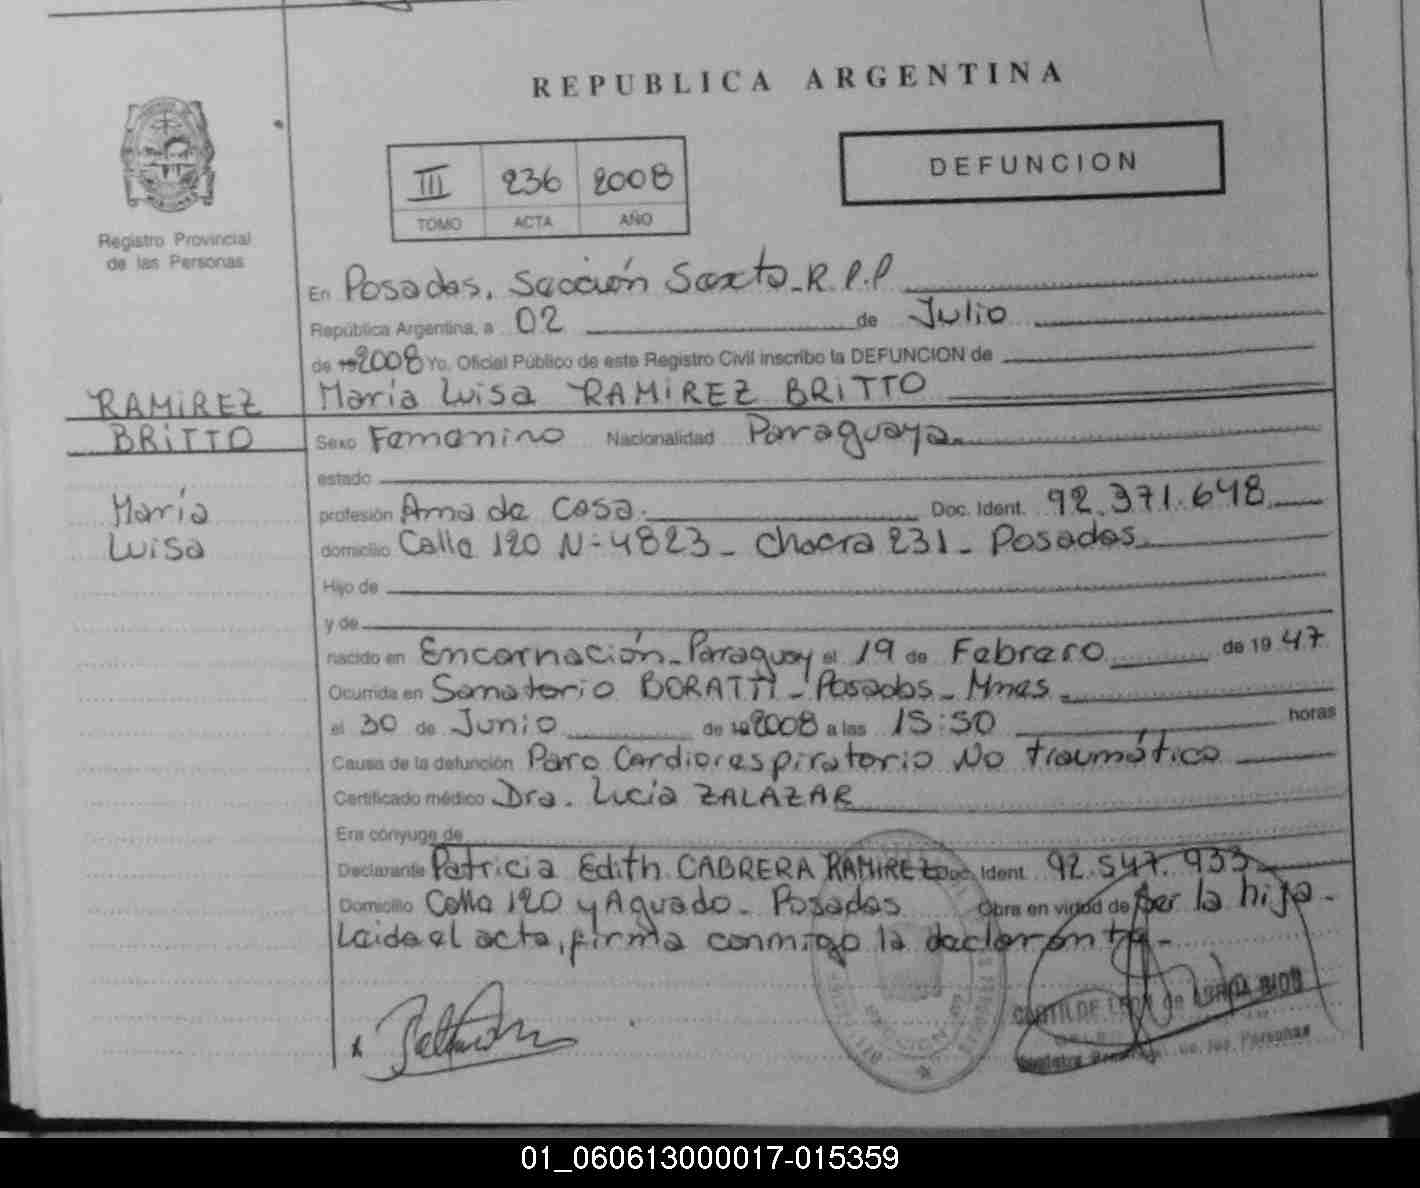 REPUBLICA ARGENTINA
III 236 2008
TOMO ACTA AÑO
DEFUNCION
Registro Provincial
de las Personas
En Posadas, Sección Sexta - R.P.P
República Argentina, a 02 de Julio
de 2008 Yo, Oficial Público de este Registro Civil inscribo la DEFUNCION de
RAMIREZ
BRITTO
María
Luisa
María Luisa RAMIREZ BRITTO
Sexo Femenino Nacionalidad Paraguaya.
estado
profesión Ama de Casa. Doc. Ident. 92.371.648
domicilio Calle 120 N- 4823 - Chacra 231 - Posadas
Hijo de
y de
nacido en Encarnación - Paraguay el 19 de Febrero de 1947
Ocurrida en Sanatorio BORATTI - Posadas - Mnes
el 30 de Junio de 2008 a las 15:50 horas
Causa de la defunción Paro Cardiorespiratorio No traumático
Certificado médico Dra. Lucia ZALAZAR
Era cónyuge de
Declarante Patricia Edith CABRERA RAMIREZ Doc. Ident. 92.547.933
Domicilio Calle 120 y Aguado - Posadas Obra en virtud de ser la hija -
Leida el acta, firma conmigo la declarante -
de las Personas
01_060613000017-015359